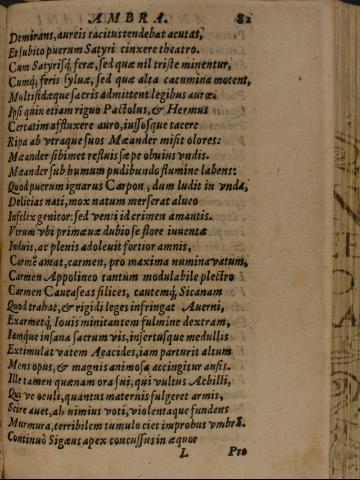 AMBRA. 82
Demirans, aureis tacitus tendebat acutas,
Et subito puerum Satyri cinxere theatro.
Cum Satyrisq́; feræ, sed quæ nil triste minentur,
Cumq́; feris syluæ, sed quæ alta cacumina motent,
Multifidæque sacris admittent legibus auræ.
Ipsi quin etiam riguo Pactolus, & Hermus
Certatim affluxere auro, iussosque tacere
Ripa ab vtraque suos Mæander misit olores:
Mæander sibimet refluis sæpe obuius vndis.
Mæander sub humum pudibundo flumine labens:
Quod puerum ignarus Carpon, dum ludit in vnda,
Delicias nati, mox natum merserat alueo
Infelix genitor: sed venti id crimen amantis.
Verum vbi primæuæ dubio se flore iuuentæ
Induit, ac plenis adoleuit fortior amnis,
Carmē amat, carmen, pro maxima numina vatum,
Carmen Appolineo tantum modulabile plectro
Carmen Caucaseas silices, cautemq́; Sicanam
Quod trahat, & rigidi leges infringat Auerni,
Exarmetq́; Iouis minitantem fulmine dextram,
Iamque insana sacrum vis, insertusque medullis
Extimulat vatem Aeacides, iam parturit altum
Mens opus, & magnis animosa accingitur ausis.
Ille tamen quænam ora sui, qui vultus Achilli,
Qui ve oculi, quantus maternis fulgeret armis,
Scire auet, ah nimius voti, violentaque fundens
Murmura, terribilem tumulo ciet improbus vmbrā.
Continuò Sigæus apex concussus in æquor
L Pro